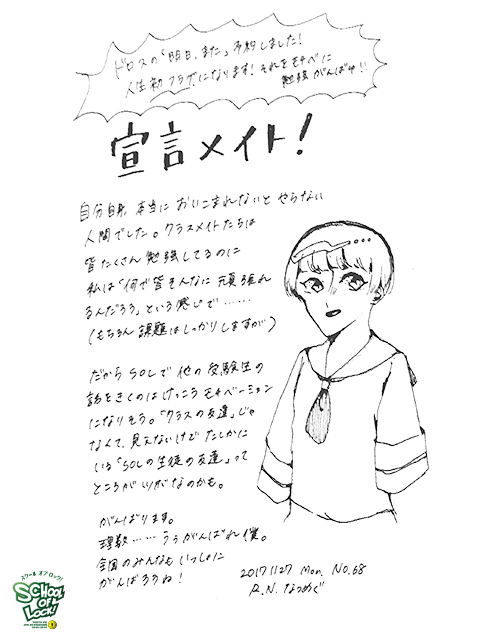 ドロスの「明日、また」予約しました!
人生初フラゲになります!それをモチベに
勉強がんばゆ!!
宣言メイト!
自分自身、本当においこまれないとやらない
人間でした。クラスメイトたちは
皆たくさん勉強してるのに
私は「何で皆そんなに頑張れ
るんだろう」という感じで……
(もちろん課題はしっかりしますが)
だからSOLで他の受験生の
話をきくのはけっこうモチベーション
になりそう。「クラスの友達」じゃ
なくて、見えないけどたしかに
いる「SOLの生徒の友達」って
ところがいいがなのかも。
がんばります。
理数……うぅがんばれ僕。
全国のみんなもいっしょに
がんばろうね!
2017 1127 Mon. No.68
R.N. なつめぐ
スクール オブ ロック!
SCHOOL
OF
LOCK!